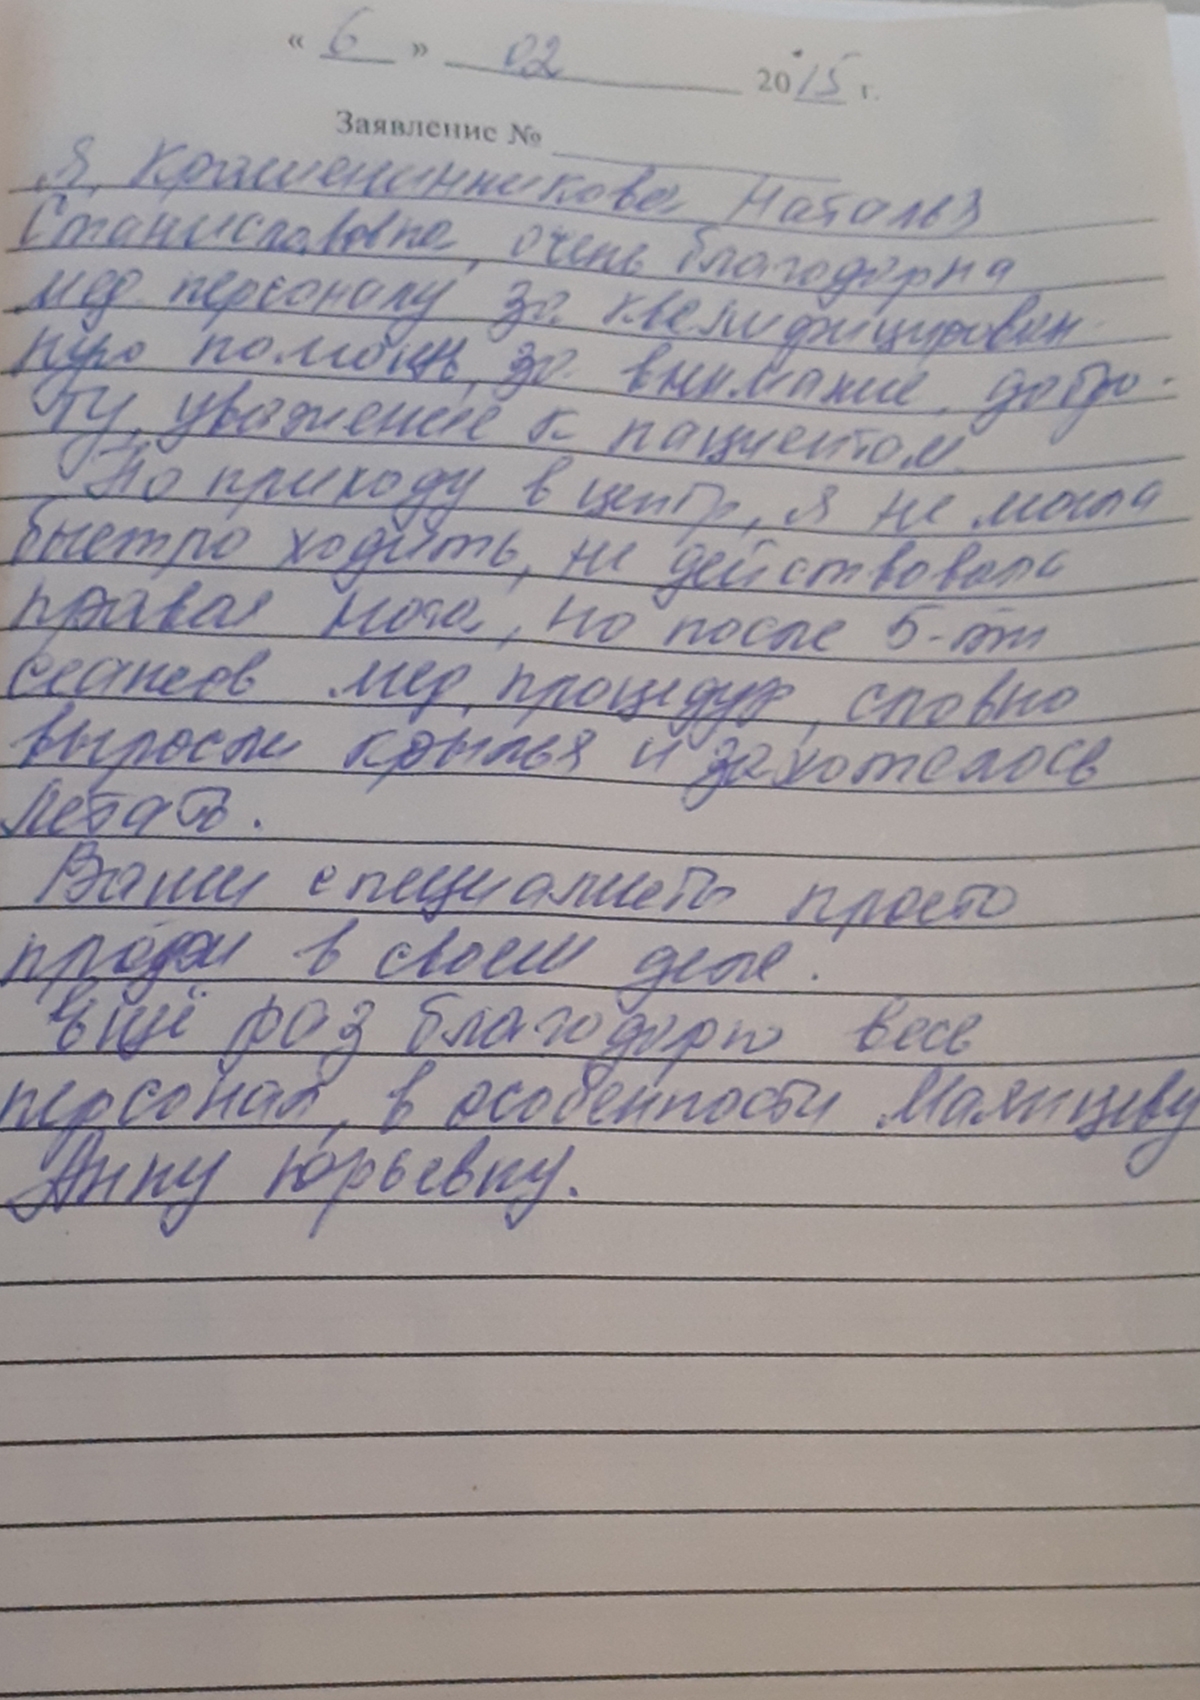 « 6 » 02 2015 г.
Заявление №
Я, Крашенинникова Наталья
Станиславовна, очень благодарна
мед. персоналу за квалифицирован-
ную помощь, за внимание, добро-
ту, уважение к пациентам.
По приходу в центр, я не могла
быстро ходить, не действовала
правая нога, но после 5-ти
сеансов мед. процедур, словно
выросли крылья и захотелось
летать.
Ваши специалисты просто
профи в своем деле.
Ещё раз благодарю весь
персонал, в особенности
Анну Юрьевну.